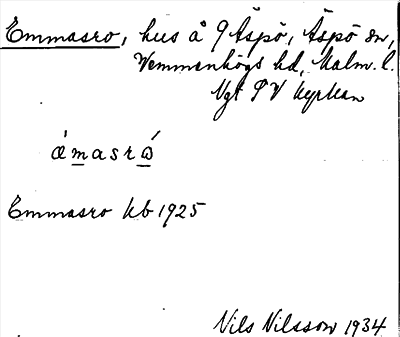 Emmasro, hus å 9 Äspö, Äspö sn,
Vemmenhögs hd, Malm. l.
Vgt TV kyrkan
ǽmasrǿ
Emmasro kb 1925
Nils Nilsson 1934